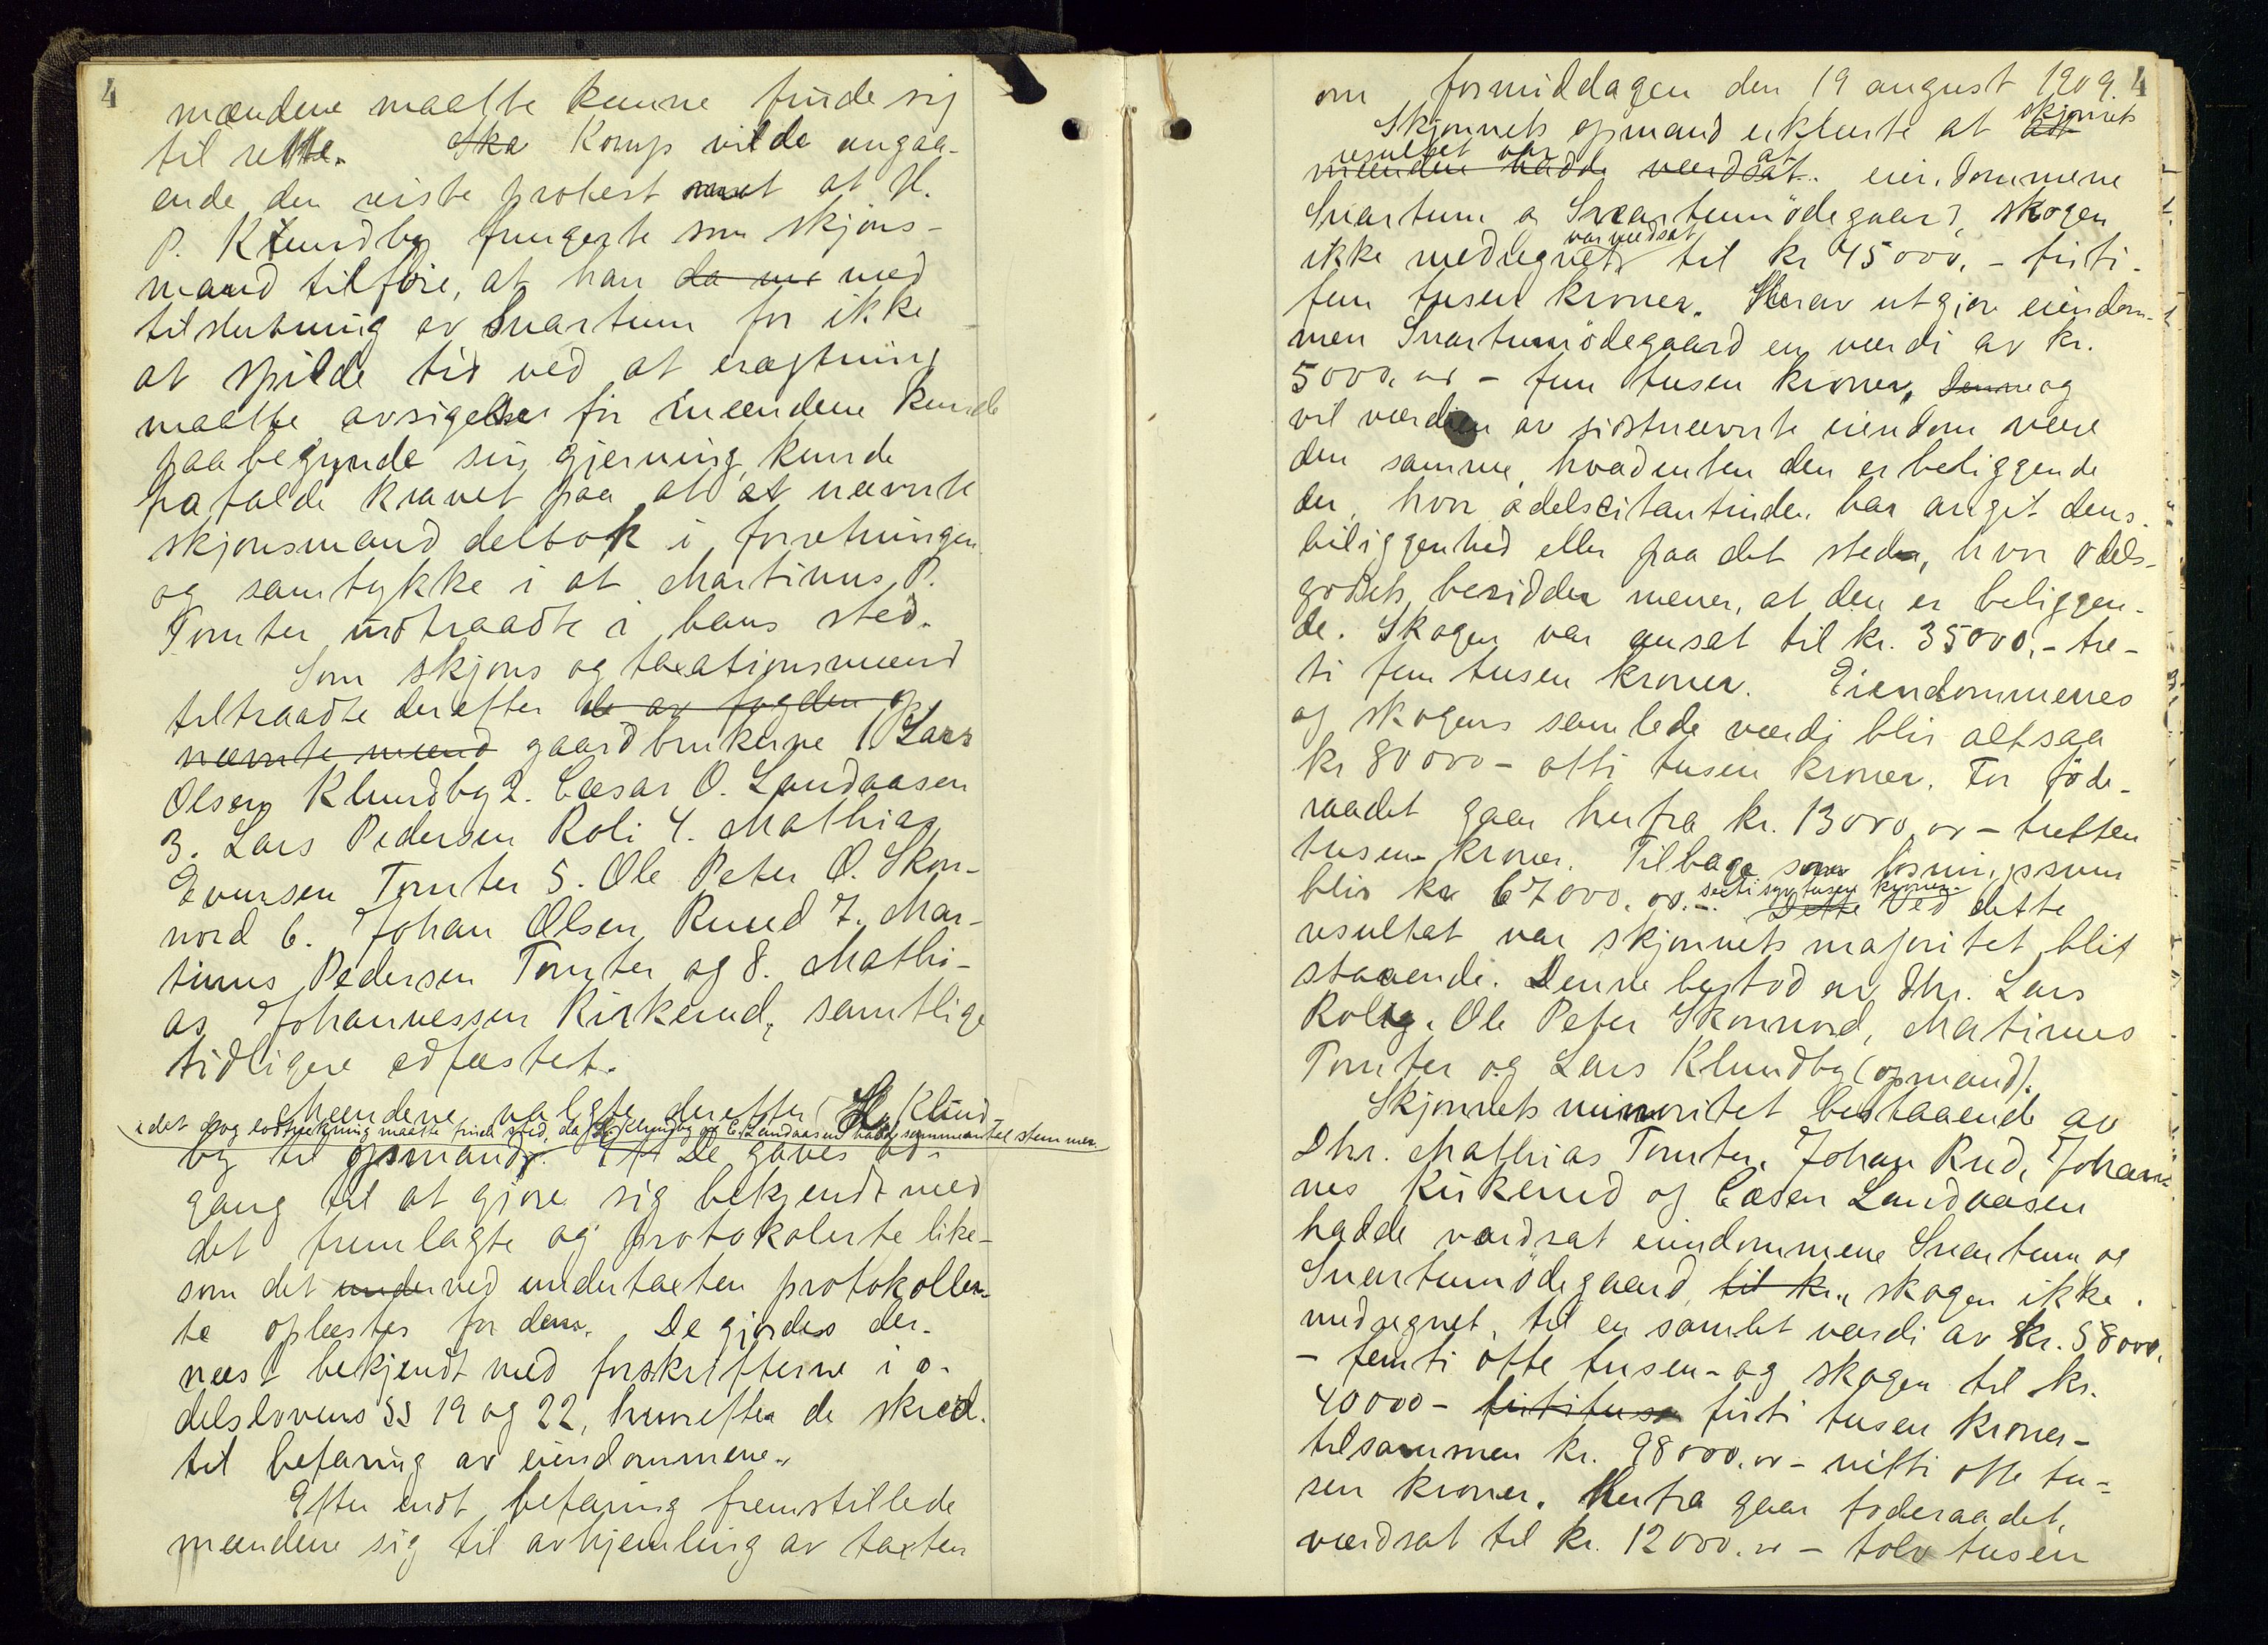 4
mændene maatte kunne finde sig
til rette. Ska Komp vilde angaa-
ende den reiste protest mot at H.
P. Klundby fungerte som skjøns-
mand tilføie, at han da me med
tilslutning av Svartum for ikke
at spilde tid ved at eragtning
maatte avsiges før mændene kunde
paabegynde sin gjerning, kunde
frafalde kravet paa at at nævnte
skjønsmand deltok i forretningen
og samtykke i at Martinus P.
Tomter indtraadte i hans sted.
Som skjøns og taxationsmænd
tiltraadte derefter de av fogden op
nævnte mænd gaardbrukerne 1. Lars
Olsen Klundby 2. Cæsar O. Landaasen
3. Lars Pedersen Roli 4. Mathias
Evensen Tomter 5. Ole Peter O. Skon-
nord 6. Johan Olsen Ruud 7. Mar-
tinus Pedersen Tomter og 8. Mathi-
as Johannessen Kirkerud, samtlige
tidligere edfæstet.
Mændene valgte derefter L. Klund-
idet dog lodtrækning maatte finde sted, da L. Klundby og C. Landaasen hadde samme antal stemmer
by til opmand. De gaves ad-
gang til at gjøre sig bekjendt med
det fremlagte og protokolerte like-
som det under ved undertaxten protokoller-
te oplæstes for dem. De gjordes der-
næst bekjendt med forskrifterne i o-
delslovens §§ 19 og 22, hvorefter de skred
til befaring av eiendommene.
Efter endt befaring fremstillede
mændene sig til avhjemling av taxten
4
om formiddagen den 19 august 1909.
Skjønnets opmand erklærte at at skjønnets
resultet var at
mændene hadde værdsat eiendommene
Svartum og Svartumødegaard, skogen
var værdsat
ikke medregnet til kr 45000,- firti-
fem tusen kroner. Herav utgjør eiendom-
men Svartumødegaard en værdi av kr.
5000,00 - fem tusen kroner, Denne og
vil værdien av sidstnævnte eiendom være
den samme, hvadenten den er beliggende
der, hvor odelscitantinden har angit dens
beliggenhed eller paa det sted, hvor odels-
godsets besidder mener, at den er beliggen-
de. Skogen var anset til kr. 35000,- tre-
ti fem tusen kroner. Eiendommenes
og skogens samlede værdi blir altsaa
kr 80000 - otti tusen kroner. For føde-
raadet gaar herfra kr. 13000,00 - tretten
tusen kroner. Tilbage som løsningssum
blir kr 67000.00. - sexti syv tusen kroner. Dette Ved dette
resultat var skjønnets majoritet blit
staaende. Denne bestod av Dhr. Lars
Rolig, Ole Peter Skonnord, Matinus
Tomter og Lars Klundby (opmand).
Skjønnets minoritet bestaaende av
Dhr. Mathias Tomter, Johan Rud, Johan-
nes Kirkerud og Cæsar Landaasen
hadde værdsat eiendommene Svartum og
Svartumødegaard, til kr., skogen ikke
medregnet, til en samlet værdi av kr. 58000,
- femti otte tusen - og skogen til kr.
40000 - firtitusen firti tusen kroner -
tilsammen kr. 98000.00 - nitti otte tu-
sen kroner. Herfra gaar føderaadet,
værdsat til kr. 12000.00 - tolv tusen